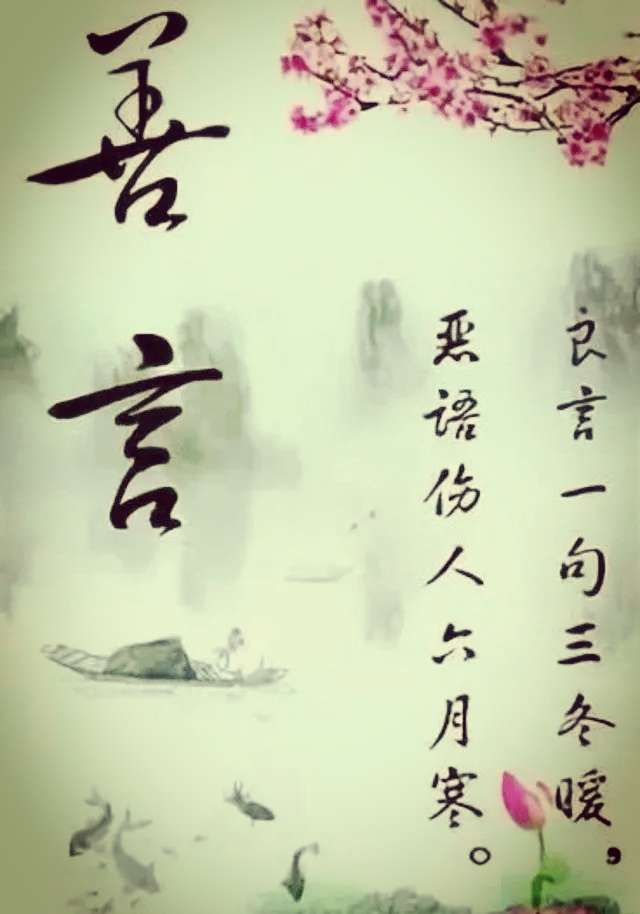 善言
良言一句三冬暖，
恶语伤人六月寒。